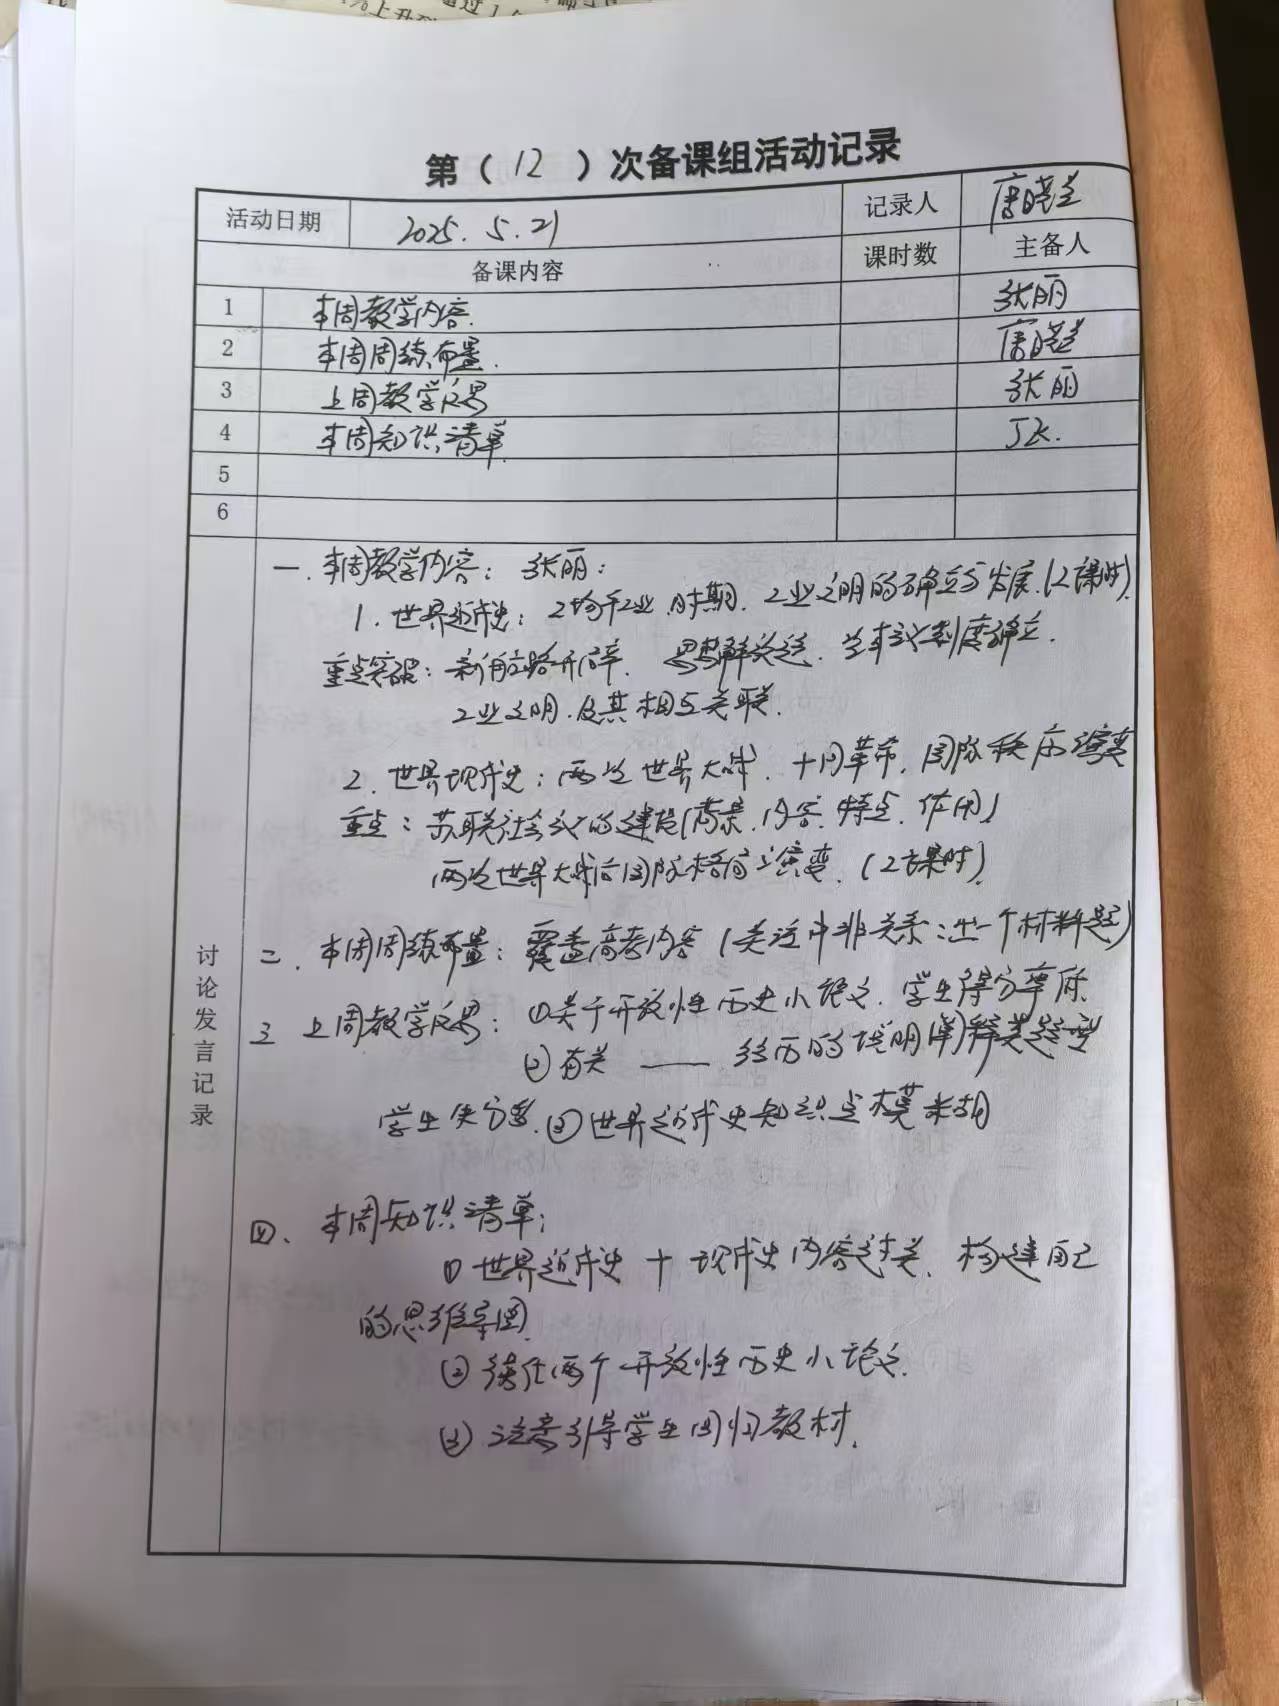 第（ 12 ）次备课组活动记录
活动日期 2025. 5. 21 记录人 唐晓兰
备课内容 课时数 主备人
1 本周教学内容. 张丽
2 本周周练布置. 唐晓兰
3 上周教学反思 张丽
4 本周知识清单.
5
6
讨论发言记录
一. 本周教学内容: 张丽:
1. 世界近代史: 工场手工业时期. 工业文明的确立与发展.(2课时).
重点突破: 新航路开辟. 思想解放运. 资本主义制度确立.
工业文明.及其相互关联.
2. 世界现代史: 两次世界大战. 十月革命. 国际秩序演变
重点: 苏联社会主义的建设(背景.内容.特点.作用)
两次世界大战后国际格局演变. (2课时).
二. 本周周练布置: 覆盖高考内容 (关注中非关系:出一个材料题)
3 上周教学反思: ①关于开放性历史小论文. 学生得分率低.
②有关 —— 经历的说明阐释类题型
学生失分多. ③世界近代史知识点模糊
四、本周知识清单:
① 世界近代史 + 现代史内容过关. 构建自己
的思维导图.
② 两个开放性历史小论文.
③ 注意引导学生回归教材.